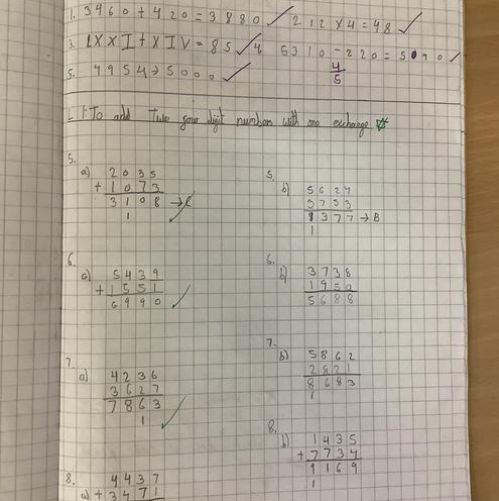 1. 3460 + 420 = 3880 2. 12 × 4 = 48
3. LXXI + XIV = 85 4. 5310 - 220 = 5090
5. 4954 → 5000 4/5
L.I To add two four digit numbers with one exchange
5.
a) 2035
+ 1073
3108 →
1
5.
b) 5624
3753
9377 → B
1
6.
a) 5439
+ 1551
6990
6.
b) 3738
1950
5688
7.
a) 4236
3627
7863
1
7.
b) 5862
2821
8683
1
8.
b) 1435
+ 7734
9169
1
8. 4437
a) + 3471